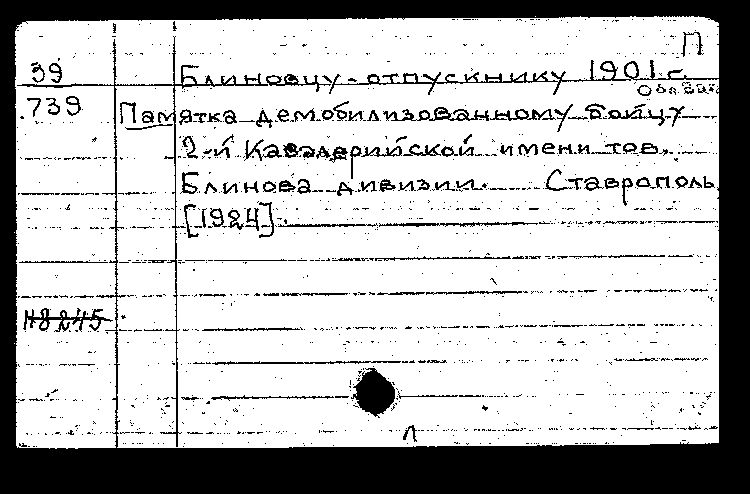 П
39 Блиновцу-отпускнику 1901 г.
.739 Памятка демобилизованному бойцу
2-й Кавалерийской имени тов.
Блинова дивизии. Ставрополь
[1924].
Н8245
Л